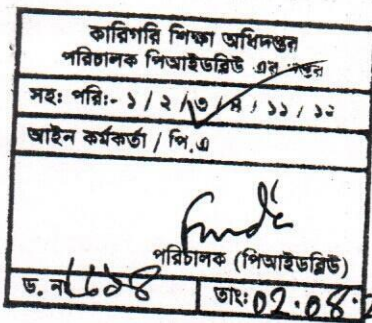 কারিগরি শিক্ষা অধিদপ্তর
পরিচালক পিআইডব্লিউ এর দপ্তর
সহঃ পরিঃ- ১ / ২ / ৩ / ৪ / ১১ / ১২
আইন কর্মকর্তা / পি,এ
পরিচালক (পিআইডব্লিউ)
ড. নং
তাং: ০২.০৪.